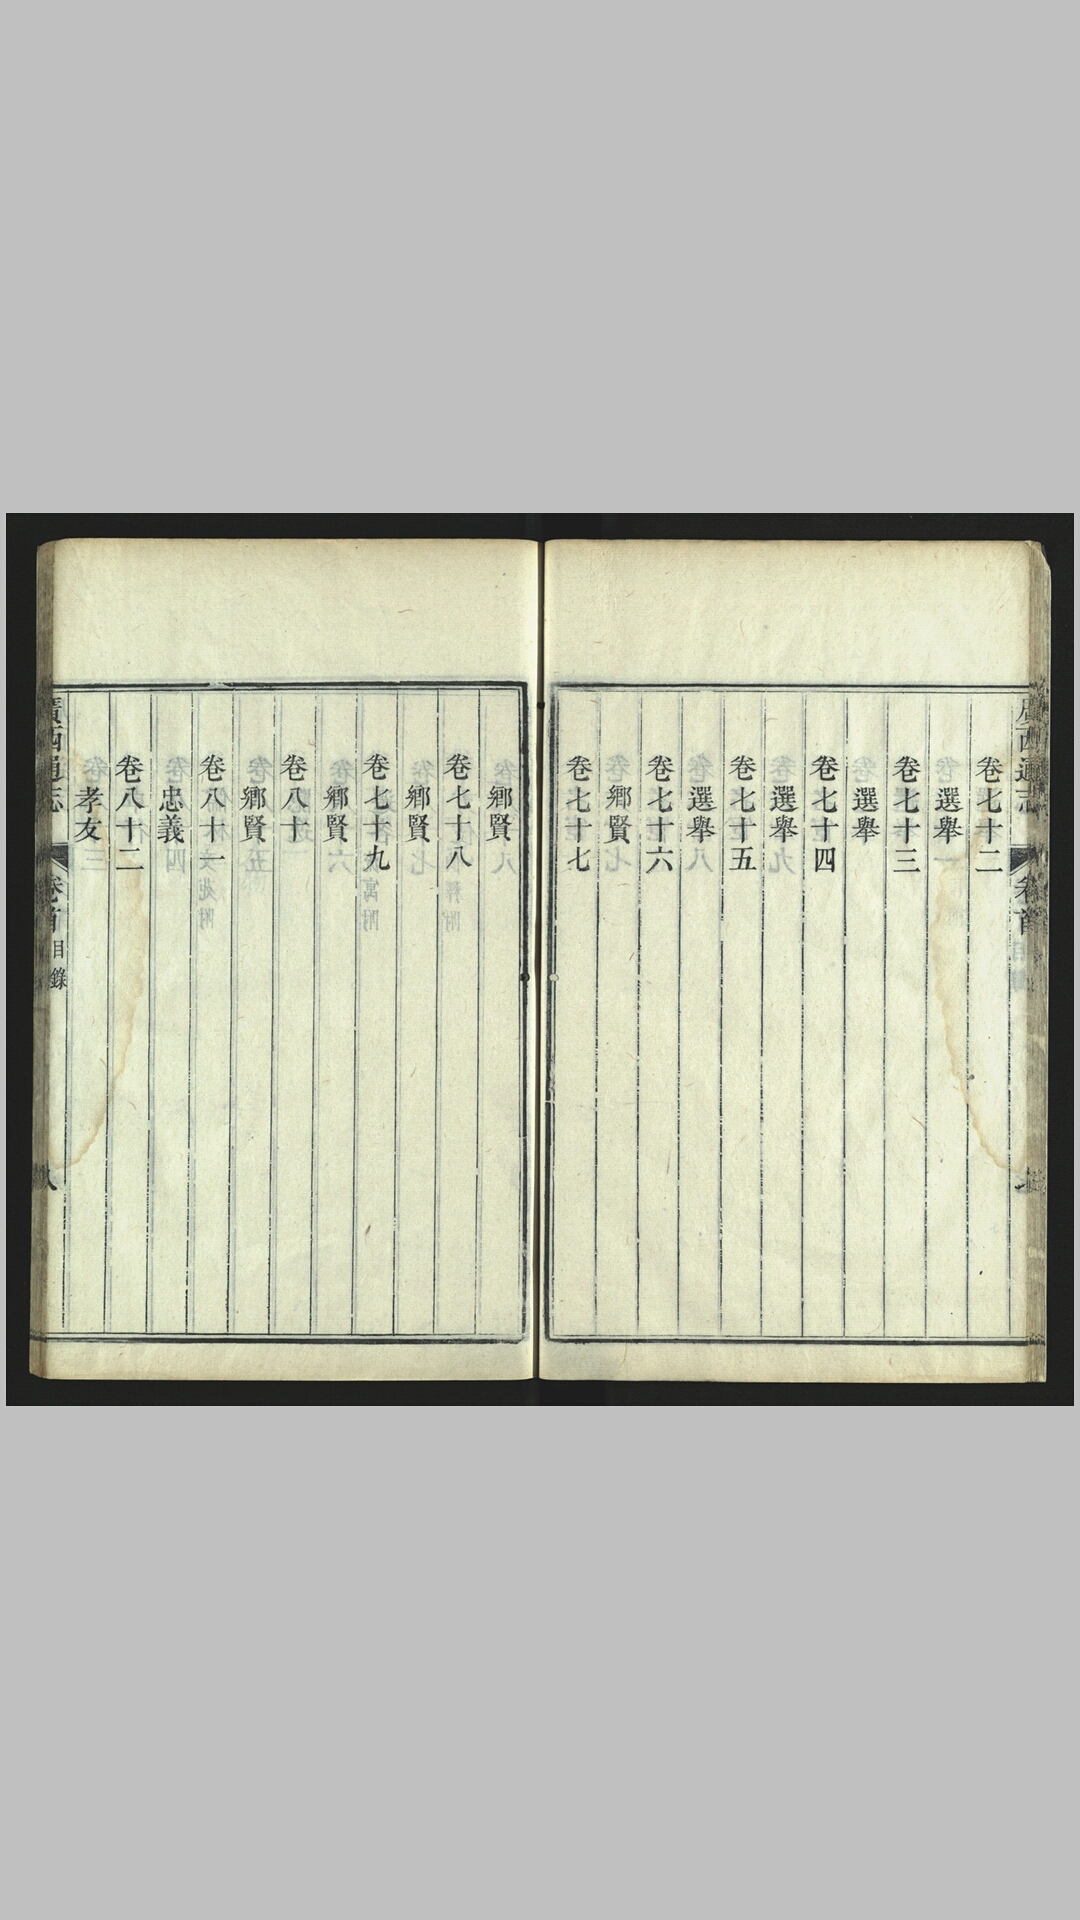 卷七十二
選舉
卷七十三
選舉
卷七十四
選舉
卷七十五
選舉
卷七十六
鄉賢
卷七十七
鄉賢
卷七十八
鄉賢
卷七十九
鄉賢
卷八十
鄉賢
卷八十一
忠義
卷八十二
孝友
廣西通志
卷首
目錄
八